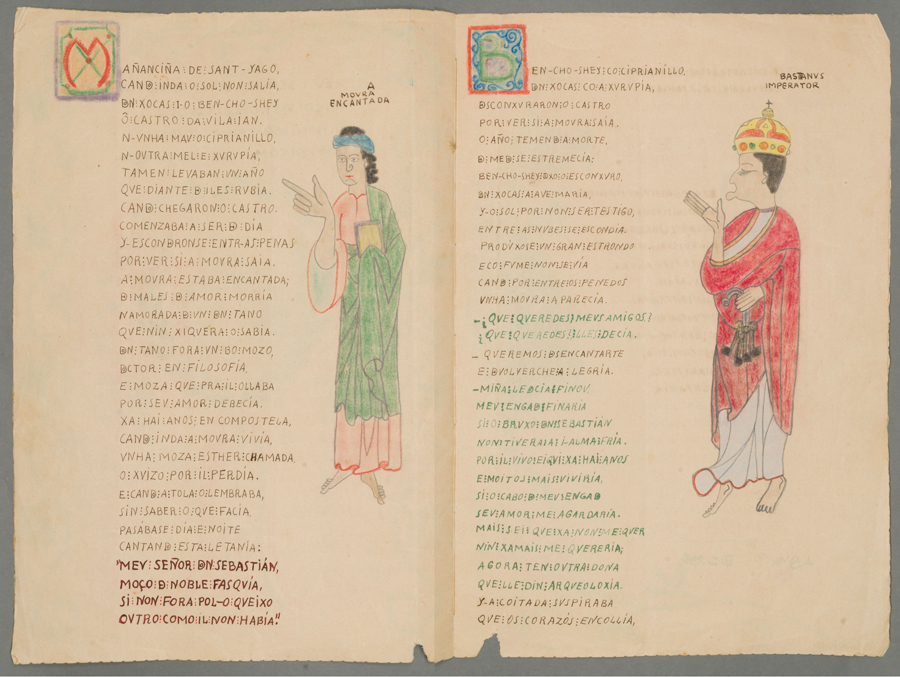 MAÑANCIÑA⋮DE⋮SANT-YAGO,
CAND⋮INDA⋮O⋮SOL⋮NON⋮SALIA,
DN⋮XOCAS⋮I-O⋮BEN-CHO-SHEY
Ó⋮CASTRO⋮DA⋮VILA⋮IAN.
N-VNHA⋮MAV⋮O⋮CIPRIANILLO,
N-OVTRA⋮MEL⋮E⋮XVRVPIA,
TAMEN⋮LEVABAN⋮VN⋮AÑO
QVE⋮DIANTE⋮D⋮ILES⋮RVBIA.
CAND⋮CHEGARON⋮O⋮CASTRO.
COMENZABA⋮A⋮SER⋮D⋮DIA
Y-ESCONDRONSE⋮ENTR-AS⋮PENAS
POR⋮VER⋮SI⋮A⋮MOVRA⋮SAIA.
A⋮MOVRA⋮ESTABA⋮ENCANTADA;
D⋮MALES⋮D⋮AMOR⋮MORRIA
NAMORADA⋮D⋮VN⋮DN⋮TANO
QVE⋮NIN⋮XIQVERA⋮O⋮SABIA.
DN⋮TANO⋮FORA⋮VN⋮BO⋮MOZO,
DCTOR⋮EN⋮FILOSOFIA,
E⋮MOZA⋮QVE⋮PRA⋮IL⋮OLLABA
POR⋮SEV⋮AMOR⋮DEBECÍA.
XA⋮HAI⋮ANOS⋮EN⋮COMPOSTELA,
CAND⋮INDA⋮A⋮MOVRA⋮VIVÍA,
VNHA⋮MOZA⋮ESTHER⋮CHAMADA
O⋮XVIZO⋮POR⋮IL⋮PERDÍA.
E⋮CAND⋮A⋮TOLA⋮O⋮LEMBRABA,
SIN⋮SABER⋮O⋮QVE⋮FACIA,
PASÁBASE⋮DIA⋮E⋮NOITE
CANTAND⋮ESTA⋮LETANÍA:
"MEV⋮SEÑOR⋮DN⋮SEBASTIÁN,
MOÇO⋮D⋮NOBLE⋮FASQVÍA,
SI⋮NON⋮FORA⋮POL-O⋮QVEIXO
OVTRO⋮COMO⋮IL⋮NON⋮HABÍA."
A
MOVRA
ENCANTADA
BEN-CHO-SHEY⋮CO⋮CIPRIANILLO,
DN⋮XOCAS⋮CO⋮A⋮XVRVPIA,
DSCONXVRARON⋮O⋮CASTRO
POR⋮VER⋮SI⋮A⋮MOVRA⋮SAIA.
O⋮AÑO⋮TEMEND⋮A⋮MORTE,
D⋮MED⋮SE⋮ESTREMECIA;
BEN-CHO-SHEY⋮DXO⋮O⋮ESCONXVRO,
DN⋮XOCAS⋮A⋮AVE⋮MARIA,
Y-O⋮SOL⋮POR⋮NON⋮SER⋮TESTIGO,
ENTRE⋮AS⋮NVBES⋮SE⋮ESCONDIA.
PRODVXOSE⋮VN⋮GRAN⋮ESTRONDO
E⋮CO⋮FVME⋮NON⋮SE⋮VÍA
CAND⋮POR⋮ENTRE⋮OS⋮PENEDOS
VNHA⋮MOVRA⋮APARECÍA.
-¿QVE⋮QVEREDES⋮MEVS⋮AMIGOS?
¿QVE⋮QVEREDES⋮LLES⋮DECIA.
- QVEREMOS⋮DSENCANTARTE
E⋮DVOLVERCHE⋮A⋮LEGRIA.
-MIÑA⋮LEDCIA⋮FINOV,
MEV⋮ENGAD⋮FINARIA
S⋮O⋮BRVXO⋮DN⋮SEBASTIÁN
NON⋮TIVERA⋮I-ALMA⋮FRÍA.
POR⋮IL⋮VIVO⋮E⋮IQVE⋮XA⋮HAI⋮ANOS
E⋮MOITOS⋮MAIS⋮VIVIRÍA,
SI⋮O⋮CABO⋮D⋮MEV⋮ENGAD
SEV⋮AMOR⋮ME⋮AGARDARÍA.
MAIS⋮SEI⋮QVE⋮XA⋮NON⋮ME⋮QVER
NIN⋮XAMAIS⋮ME⋮QVERERIA;
AGORA⋮TEN⋮OVTRA⋮DONA
QVE⋮LLE⋮DIN⋮ARQVEOLOXIA.
Y-A⋮COITADA⋮SVSPIRABA
QVE⋮OS⋮CORAZÓS⋮ENCOLLÍA,
BASTIANVS
IMPERATOR